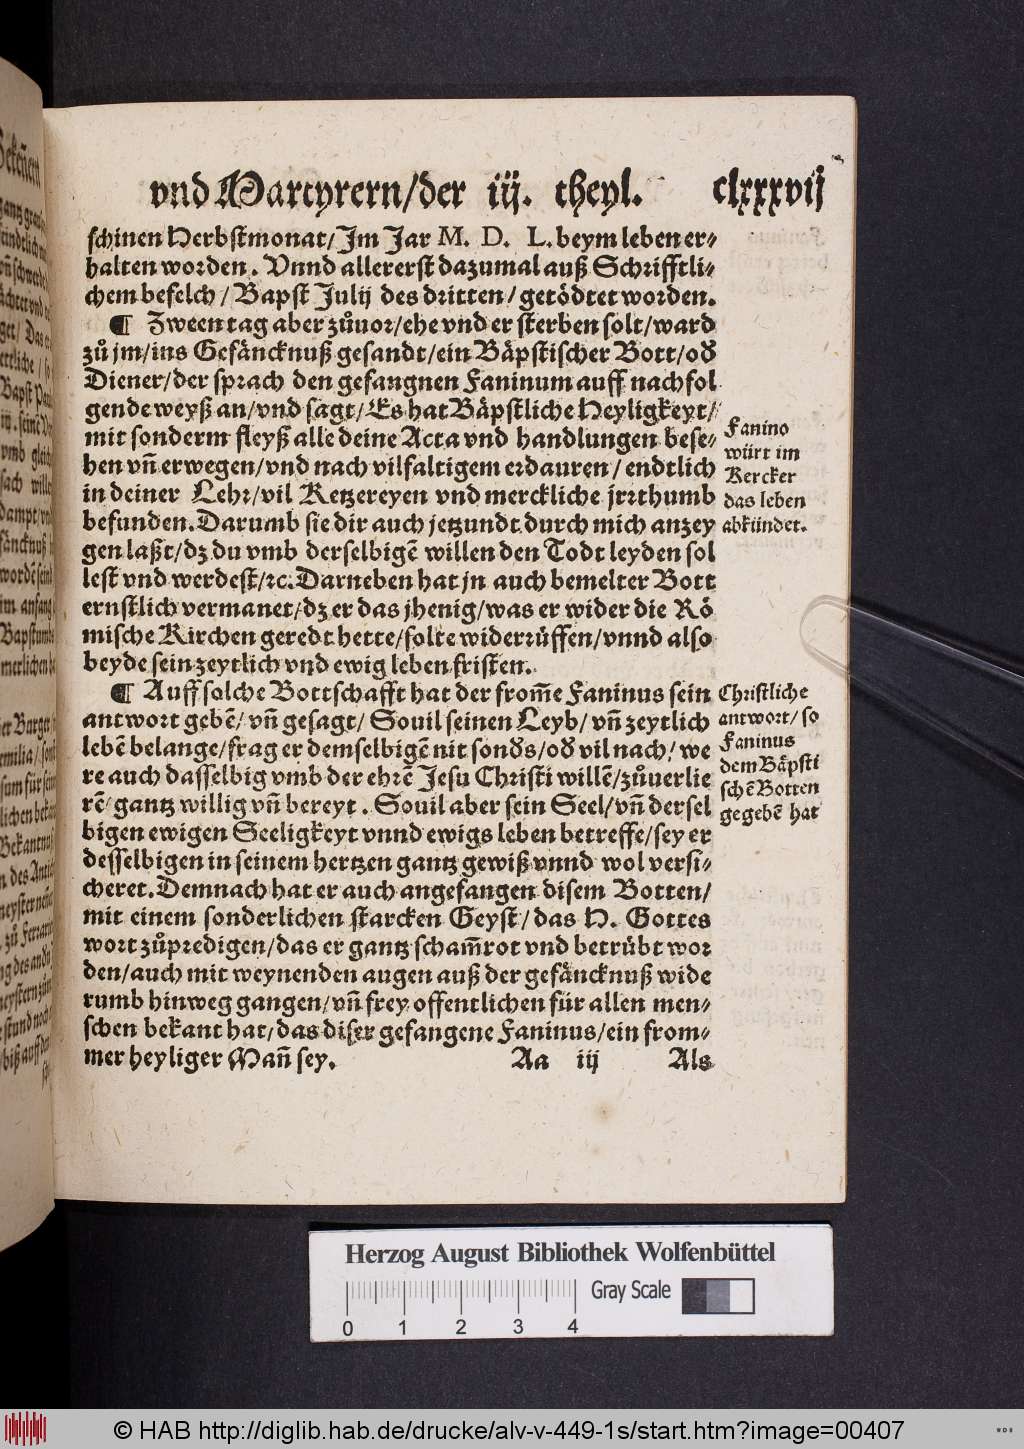 vnd Martyrern/der iij. theyl. clxxxvij
schinen Herbstmonat/Im Jar M. D. L. beym leben er-
halten worden. Vnnd allererst dazumal auß Schrifftli-
chem befelch/Bapst Julij des dritten/getödtet worden.
¶ Zween tag aber zůuor/ehe vnd er sterben solt/ward
zů jm/ins Gefäncknuß gesandt/ein Bäpstischer Bott/oď
Diener/der sprach den gefangnen Faninum auff nachfol
gende weyß an/vnd sagt/Es hat Bäpstliche Heyligkeyt/
mit sonderm fleyß alle deine Acta vnd handlungen bese-
hen vñ erwegen/vnd nach vilfaltigem erdauren/endtlich
in deiner Lehr/vil Ketzereyen vnd merckliche jrrthumb
befunden. Darumb sie dir auch jetzundt durch mich anzey
gen laßt/dz du vmb derselbigē willen den Todt leyden sol
lest vnd werdest/ꝛc. Darneben hat jn auch bemelter Bott
ernstlich vermanet/dz er das jhenig/was er wider die Rö
mische Kirchen geredt hette/solte widerrüffen/vnnd also
beyde sein zeytlich vnd ewig leben fristen.
Fanino
würt im
Kercker
das leben
abkündet.
¶ Auff solche Bottschafft hat der from̄e Faninus sein
antwort gebē/vñ gesagt/Souil seinen Leyb/vñ zeytlich
lebē belange/frag er demselbigē nit sonďs/oď vil nach/we
re auch dasselbig vmb der ehrē Jesu Christi willē/zůuerlie
rē/gantz willig vñ bereyt. Souil aber sein Seel/vñ dersel
bigen ewigen Seeligkeyt vnnd ewigs leben betreffe/sey er
desselbigen in seinem hertzen gantz gewiß vnnd wol versi-
cheret. Demnach hat er auch angefangen disem Botten/
mit einem sonderlichen starcken Geyst/das H. Gottes
wort zůpredigen/das er gantz scham̄rot vnd betrübt wor
den/auch mit weynenden augen auß der gefäncknuß wide
rumb hinweg gangen/vñ frey offentlichen für allen men-
schen bekant hat/das diser gefangene Faninus/ein from-
mer heyliger Mañ sey. Aa iij Als
Christliche
antwort/so
Faninus
dem Bäpsti
schē Botten
gegebē hat
Herzog August Bibliothek Wolfenbüttel
Gray Scale
0 1 2 3 4
© HAB http://diglib.hab.de/drucke/alv-v-449-1s/start.htm?image=00407